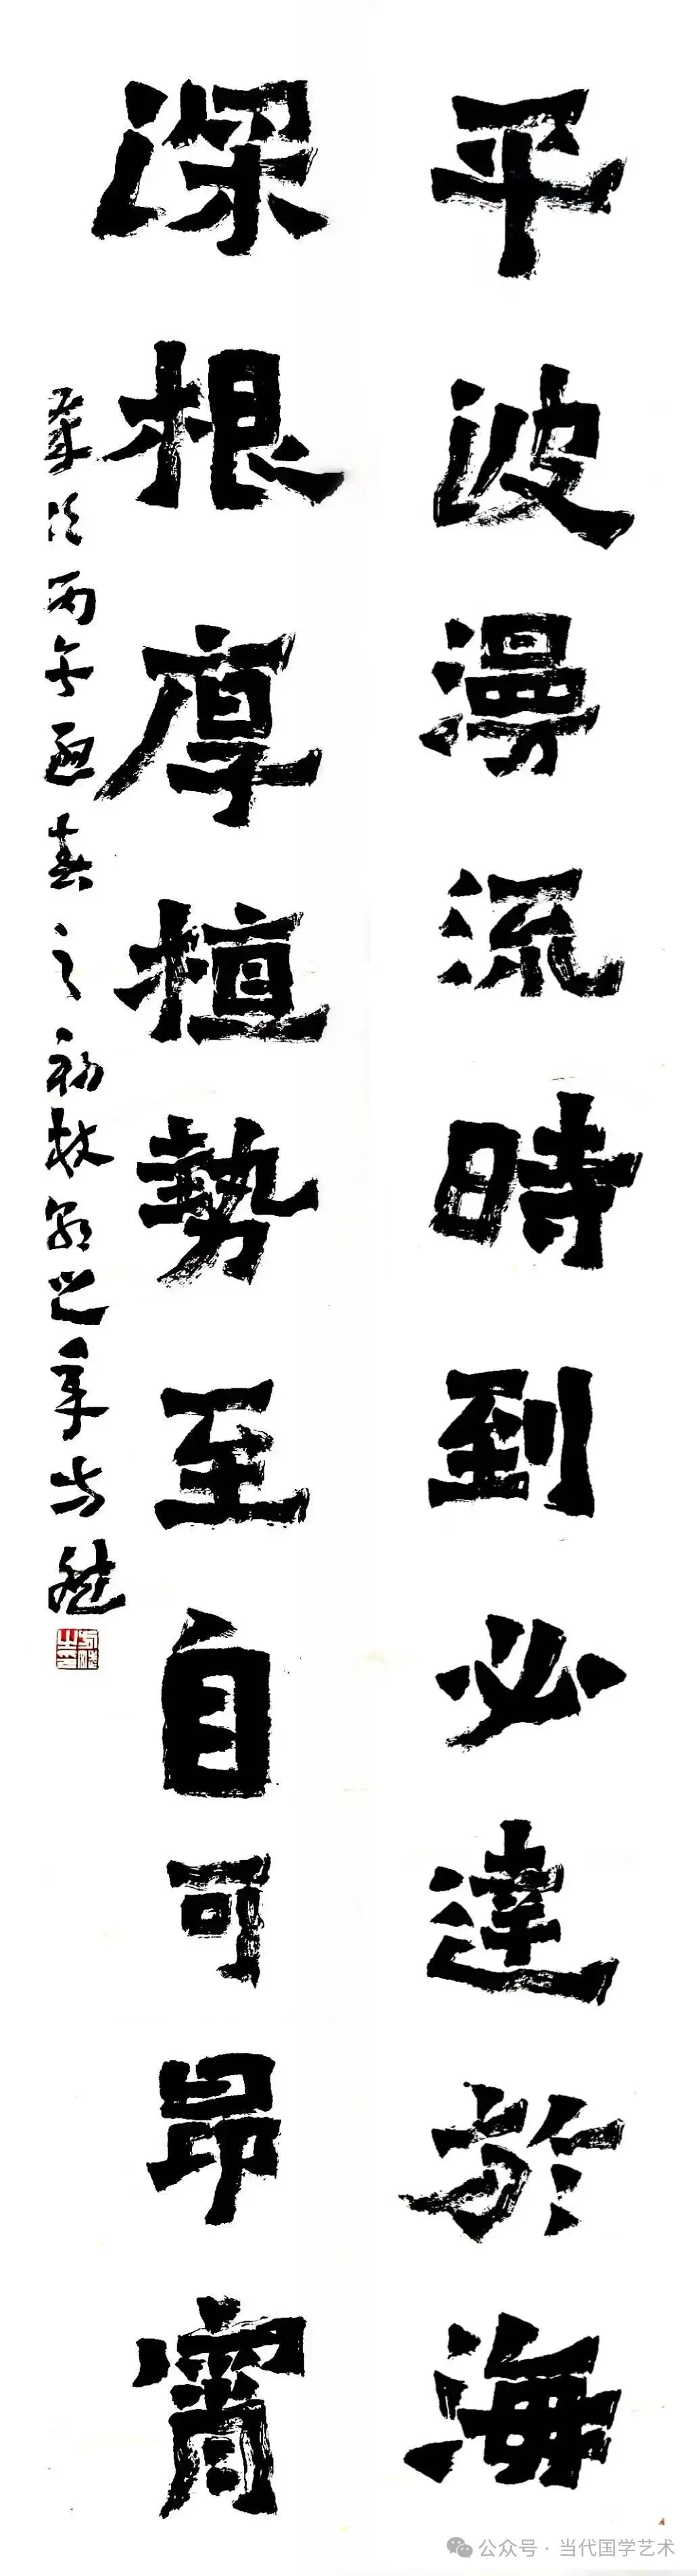 平波漫流時到必達於海
深根厚植勢至自可昂霄
歲次丙午孟春之初於京華方
公众号 · 当代国学艺术